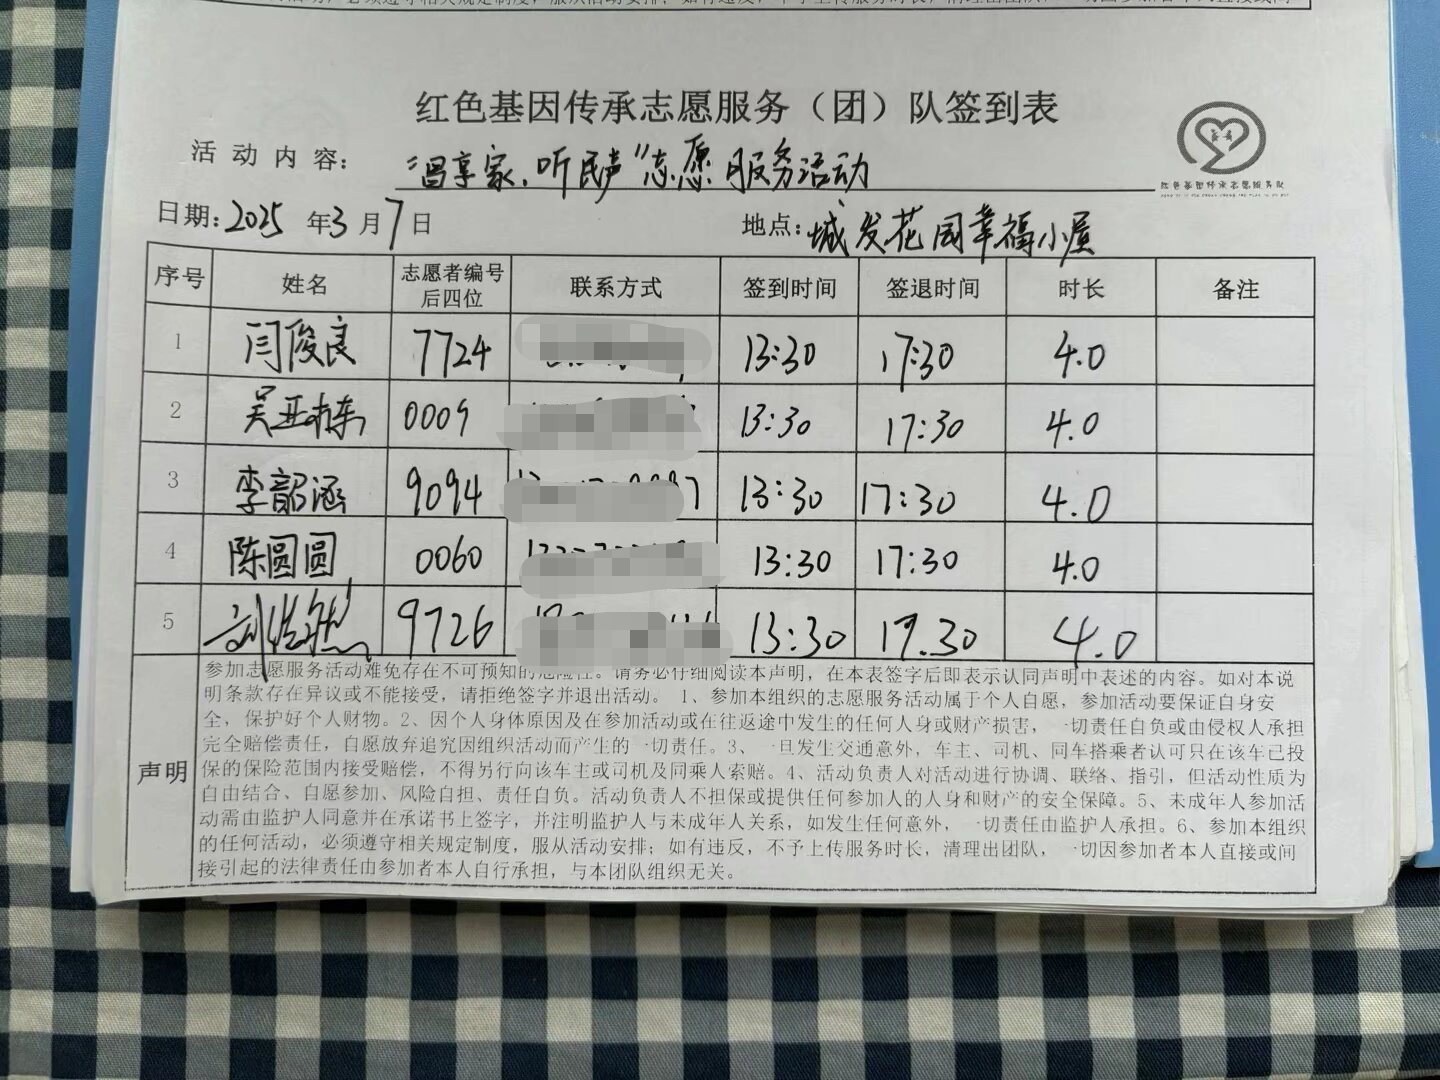 红色基因传承志愿服务（团）队签到表
活动内容： “唱享家.听民声”志愿服务活动
红色基因传承志愿服务队
日期：2025年3月7日 地点：城发花园幸福小屋
序号 姓名 志愿者编号后四位 联系方式 签到时间 签退时间 时长 备注
1 闫俊良 7724 13:30 17:30 4.0
2 吴亚栋 0009 13:30 17:30 4.0
3 李韶涵 9094 13:30 17:30 4.0
4 陈圆圆 0060 13:30 17:30 4.0
5 9726 13:30 17.30 4.0
声明
参加志愿服务活动难免存在不可预知的危险性。请务必仔细阅读本声明，在本表签字后即表示认同声明中表述的内容。如对本说
明条款存在异议或不能接受，请拒绝签字并退出活动。 1、参加本组织的志愿服务活动属于个人自愿，参加活动要保证自身安
全，保护好个人财物。2、因个人身体原因及在参加活动或在往返途中发生的任何人身或财产损害，一切责任自负或由侵权人承担
完全赔偿责任，自愿放弃追究因组织活动而产生的一切责任。3、一旦发生交通意外，车主、司机、同车搭乘者认可只在该车已投
保的保险范围内接受赔偿，不得另行向该车主或司机及同乘人索赔。4、活动负责人对活动进行协调、联络、指引，但活动性质为
自由结合、自愿参加、风险自担、责任自负。活动负责人不担保或提供任何参加人的人身和财产的安全保障。5、未成年人参加活
动需由监护人同意并在承诺书上签字，并注明监护人与未成年人关系，如发生任何意外，一切责任由监护人承担。6、参加本组织
的任何活动，必须遵守相关规定制度，服从活动安排；如有违反，不予上传服务时长，清理出团队，一切因参加者本人直接或间
接引起的法律责任由参加者本人自行承担，与本团队组织无关。